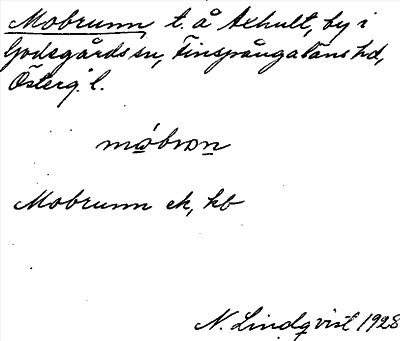 Mobrunn, t. å Axhult, by i
Godegårds sn, Finspångaläns hd,
Österg. l.
móbrωn
Mobrunn ek, hb
N. Lindqvist 1928